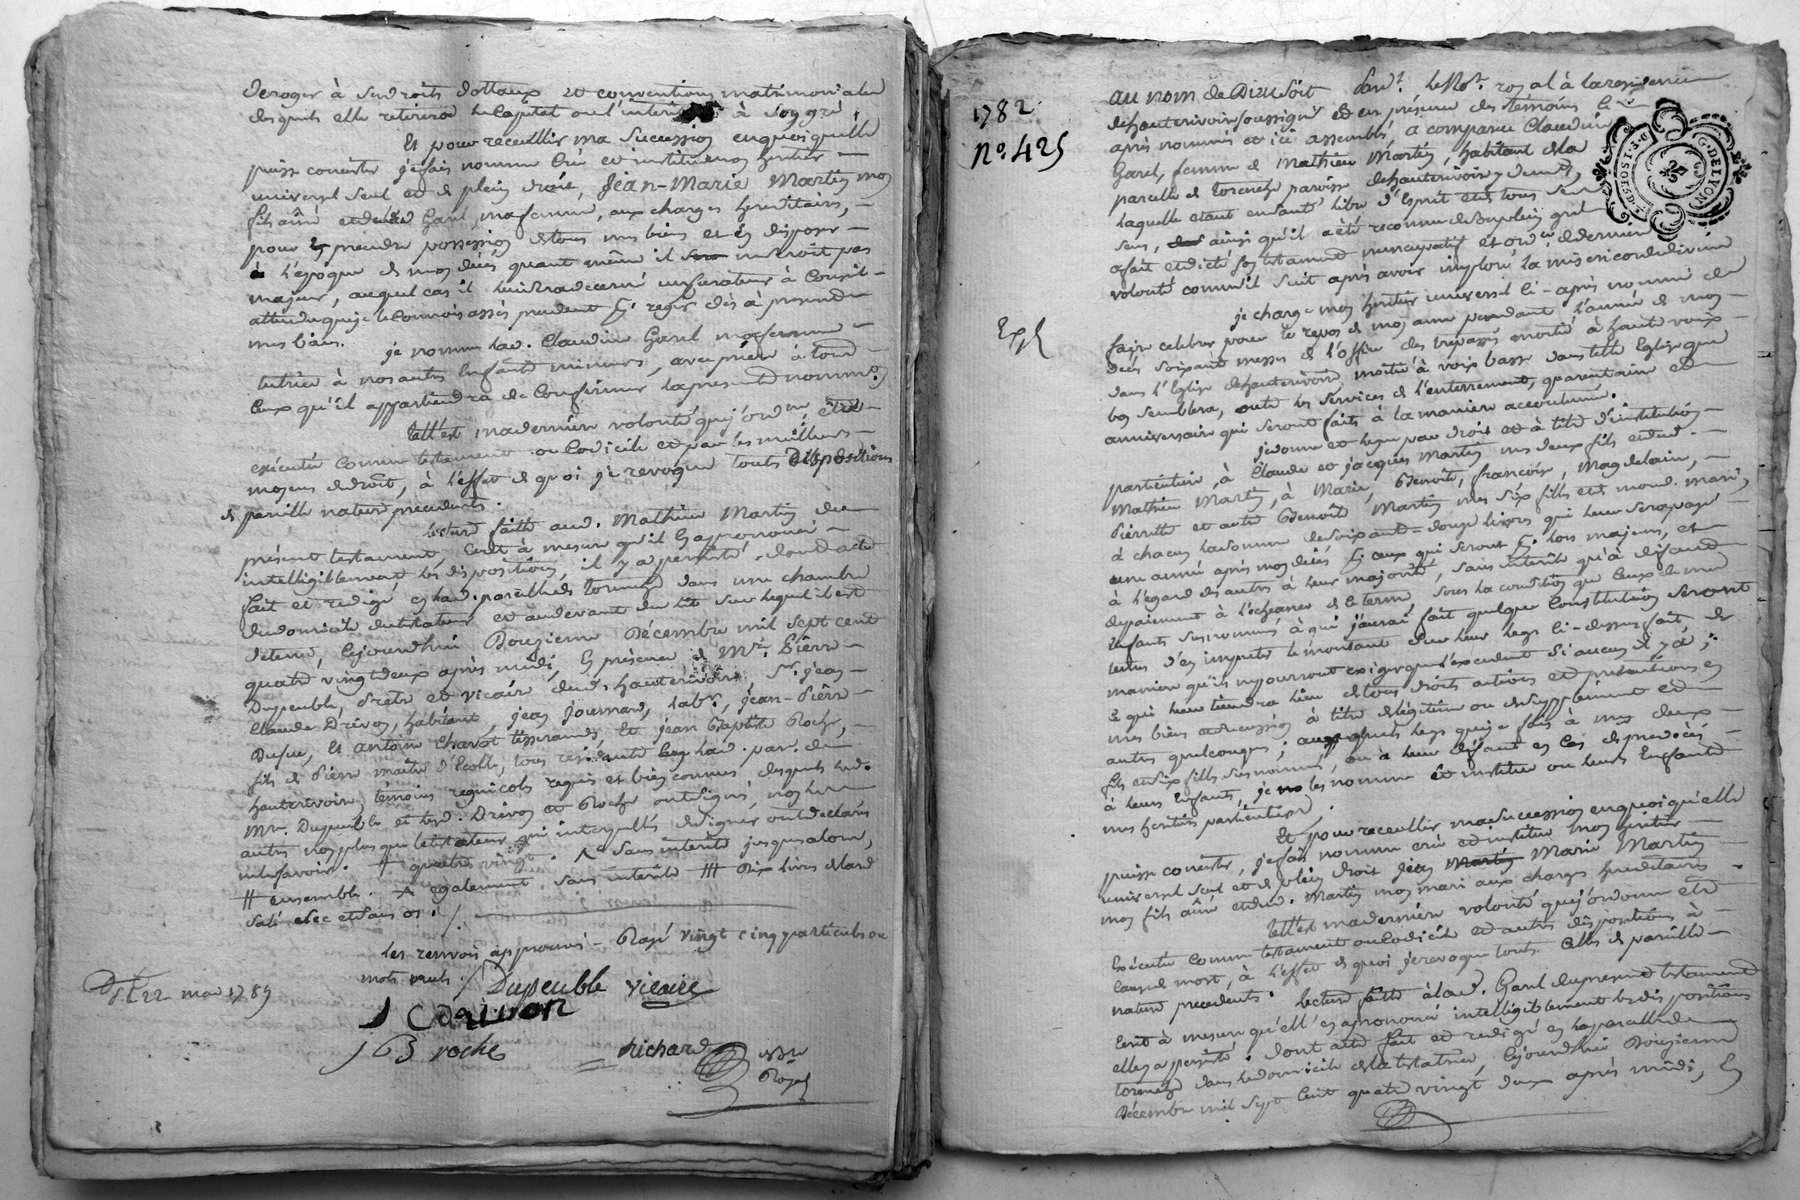 deroger à ses droits dottaux et conventions matrimonialles
desquels elle retirera le capital ou l'intérêt à son gré,
Et pour receuillir ma sucession en quoi qu'elle
puisse consister je fais nomme crée et institue mon heritier
universel seul et de plein droit, Jean-Marie Martin mon
fils aîné et de lad. Garel, ma femme, aux charges hereditaires,
pour en prendre possession de tous mes biens et en disposer
à l'époque de mon décès quant même il ne seroit pas
majeur, auquel cas il lui
attendu que je le connois assés prudent pour regir dès à present
mes biens.
je nomme lad. Claudine Garel ma femme
tutrice à nos autres Enfants mineurs, avec prière à tous
ceux qu'il appartiendra de confirmer la presente nomm.on
telle est ma dernière volonté que j'ordonne être
exécutée comme testament ou codicile et par les meilleurs
moyens de droit, à l'effet de quoi je revoque toutes dispositions
de pareille nature precedentes.
lecture faitte aud. Mathieu Martin du
présent testament écrit à mesure qu'il en a prononcé
intelligiblement les dispositions, il y a persisté, dont acte
fait et redigé en lad. parcelle de dans une chambre
du domicile du testateur et au devant du lit sur lequel il est
detenu, cejourd'hui Douzieme Décembre mil sept cent
quatre vingt deux après midi, En présence de Mre. Pierre
Dupeuble, prêtre et vicaire dud. hauterivoire, Sr. jean
Claude Drivon, habitant, jean journard, labr., jean-Pierre
Dufue, et antoine Charvot tisserands, Et jean Baptiste Roche,
fils de Pierre maître d'Ecolle, tous résidants en lad. par. de
hauterivoire, témoins regnicols requis et bien connus, desquels led.
Mre. Dupeuble et led. Drivon et Roche ont signé, non les
autres non plus que le testateur qui interpellés de signer ont declaré
ne le savoir. quatre vingt. sans interêts jusques alors,
# ensemble. également sans interêts # dix livres de lard
salé sec et sans os. /.
Les renvois approuvés - Rayé vingt cinq particules ou
mots nuls ./ Dupeuble vicaire
J C Drivon
J B roche Richard
Nre
Royal
22 mai 1789
1782
N°. 425
Exp
AU NOM de Dieu soit Pardt. le Nore. royal à la residence
de hauterivoire soussigné et en présence des témoins ci-
après nommés et ici assemblés, a comparu Claudine
Garel, femme de Mathieu Martin, habitant de la
parcelle de paroisse de hauterivoire,
laquelle etant enfantè libre d'Esprit et de tous ses
sens, ainsi qu'il a été reconnu, de son plein gré
a fait et dicté son testament nuncupatif et ordce. de derniere
volonté comme il suit après avoir imploré la misericorde divine
je charge mon heritier universel ci-après nommé de
faire celebrer pour le repos de mon ame pendant l'année de mon
decès soixante messes de l'office des trepassés moitié à haute voix
dans l'Eglise de hauterivoire, moitié à voix basse dans telle Eglise que
bon semblera, outre les services de l'enterrement, quarantaine et
anniversaire qui seront faits à la manière accoutumée.
je donne et legue par droit et à titre d'institution
particuliere, à Claude et jacques Martin mes deux fils et dud.
Mathieu Martin, à Marie, Benoite, françoise, Magdelaine,
Pierrette et autre Benoite Martin mes six filles et de mond. mari,
à chacun la somme de soixante-douze livres qui leur sera payée
une année après mon decès à ceux qui seront lors majeurs, et
à l'égard des autres à leur majorité, sans interêts qu'à defaut
de paiement à l'echeance de ce terme sous la condition que ceux de mes
Enfants susnommés à qui j'aurai fait quelque constitution seront
tenus d'en imputer le montant sur leur legs ci-dessus fait, de
maniere qu'ils ne pourront exiger que l'excedent si aucun il y a;
ce qui leur tiendra lieu de tous droits actions et pretentions en
mes biens et sucession à titre de légitime ou de supplement et
autres quelconques; auxquels legs que je fais à mes deux
fils et six filles susnommés, ou à leur defaut en cas de predecès
à leurs Enfants, je les nomme et institue ou leurs Enfants
mes heritiers particuliers.
Et pour receuillir ma sucession en quoi qu'elle
puisse consister, je fais nomme crée et institue mon heritier
universel seul et de plein droit jean Martin Marie Martin
mon fils aîné et dud. Martin mon mari aux charges hereditaires.
telle est ma derniere volonté que j'ordonne être
exécutée comme testament ou codicile et autres dispositions à
cause de mort, à l'effet de quoi je revoque toutes celles de pareille
nature precedentes. lecture faitte à lad. Garel du present testament
écrit à mesure qu'elle en a prononcé intelligiblement les dispositions
elle y a persisté. Dont acte fait et redigé en lad. parcelle de
dans le domicile de la testatrice, cejourd'hui Douzieme
Décembre mil sept Cent quatre vingt deux après midi, En
G. DE LYON